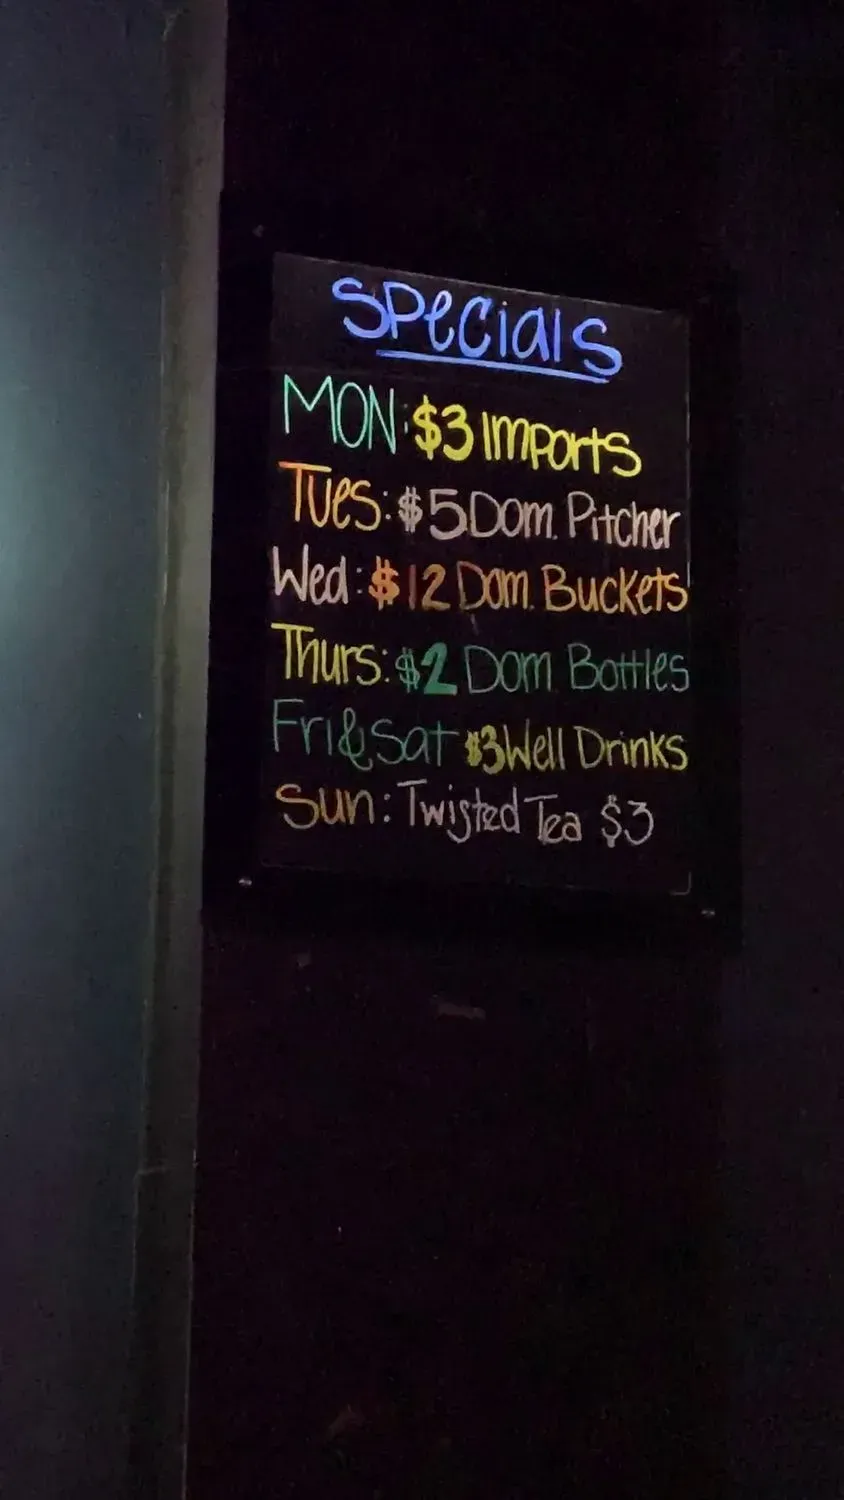 Specials
MON: $3 Imports
Tues: $5 Dom. Pitcher
Wed: $12 Dom. Buckets
Thurs: $2 Dom Bottles
Fri&Sat $3 Well Drinks
Sun: Twisted Tea $3